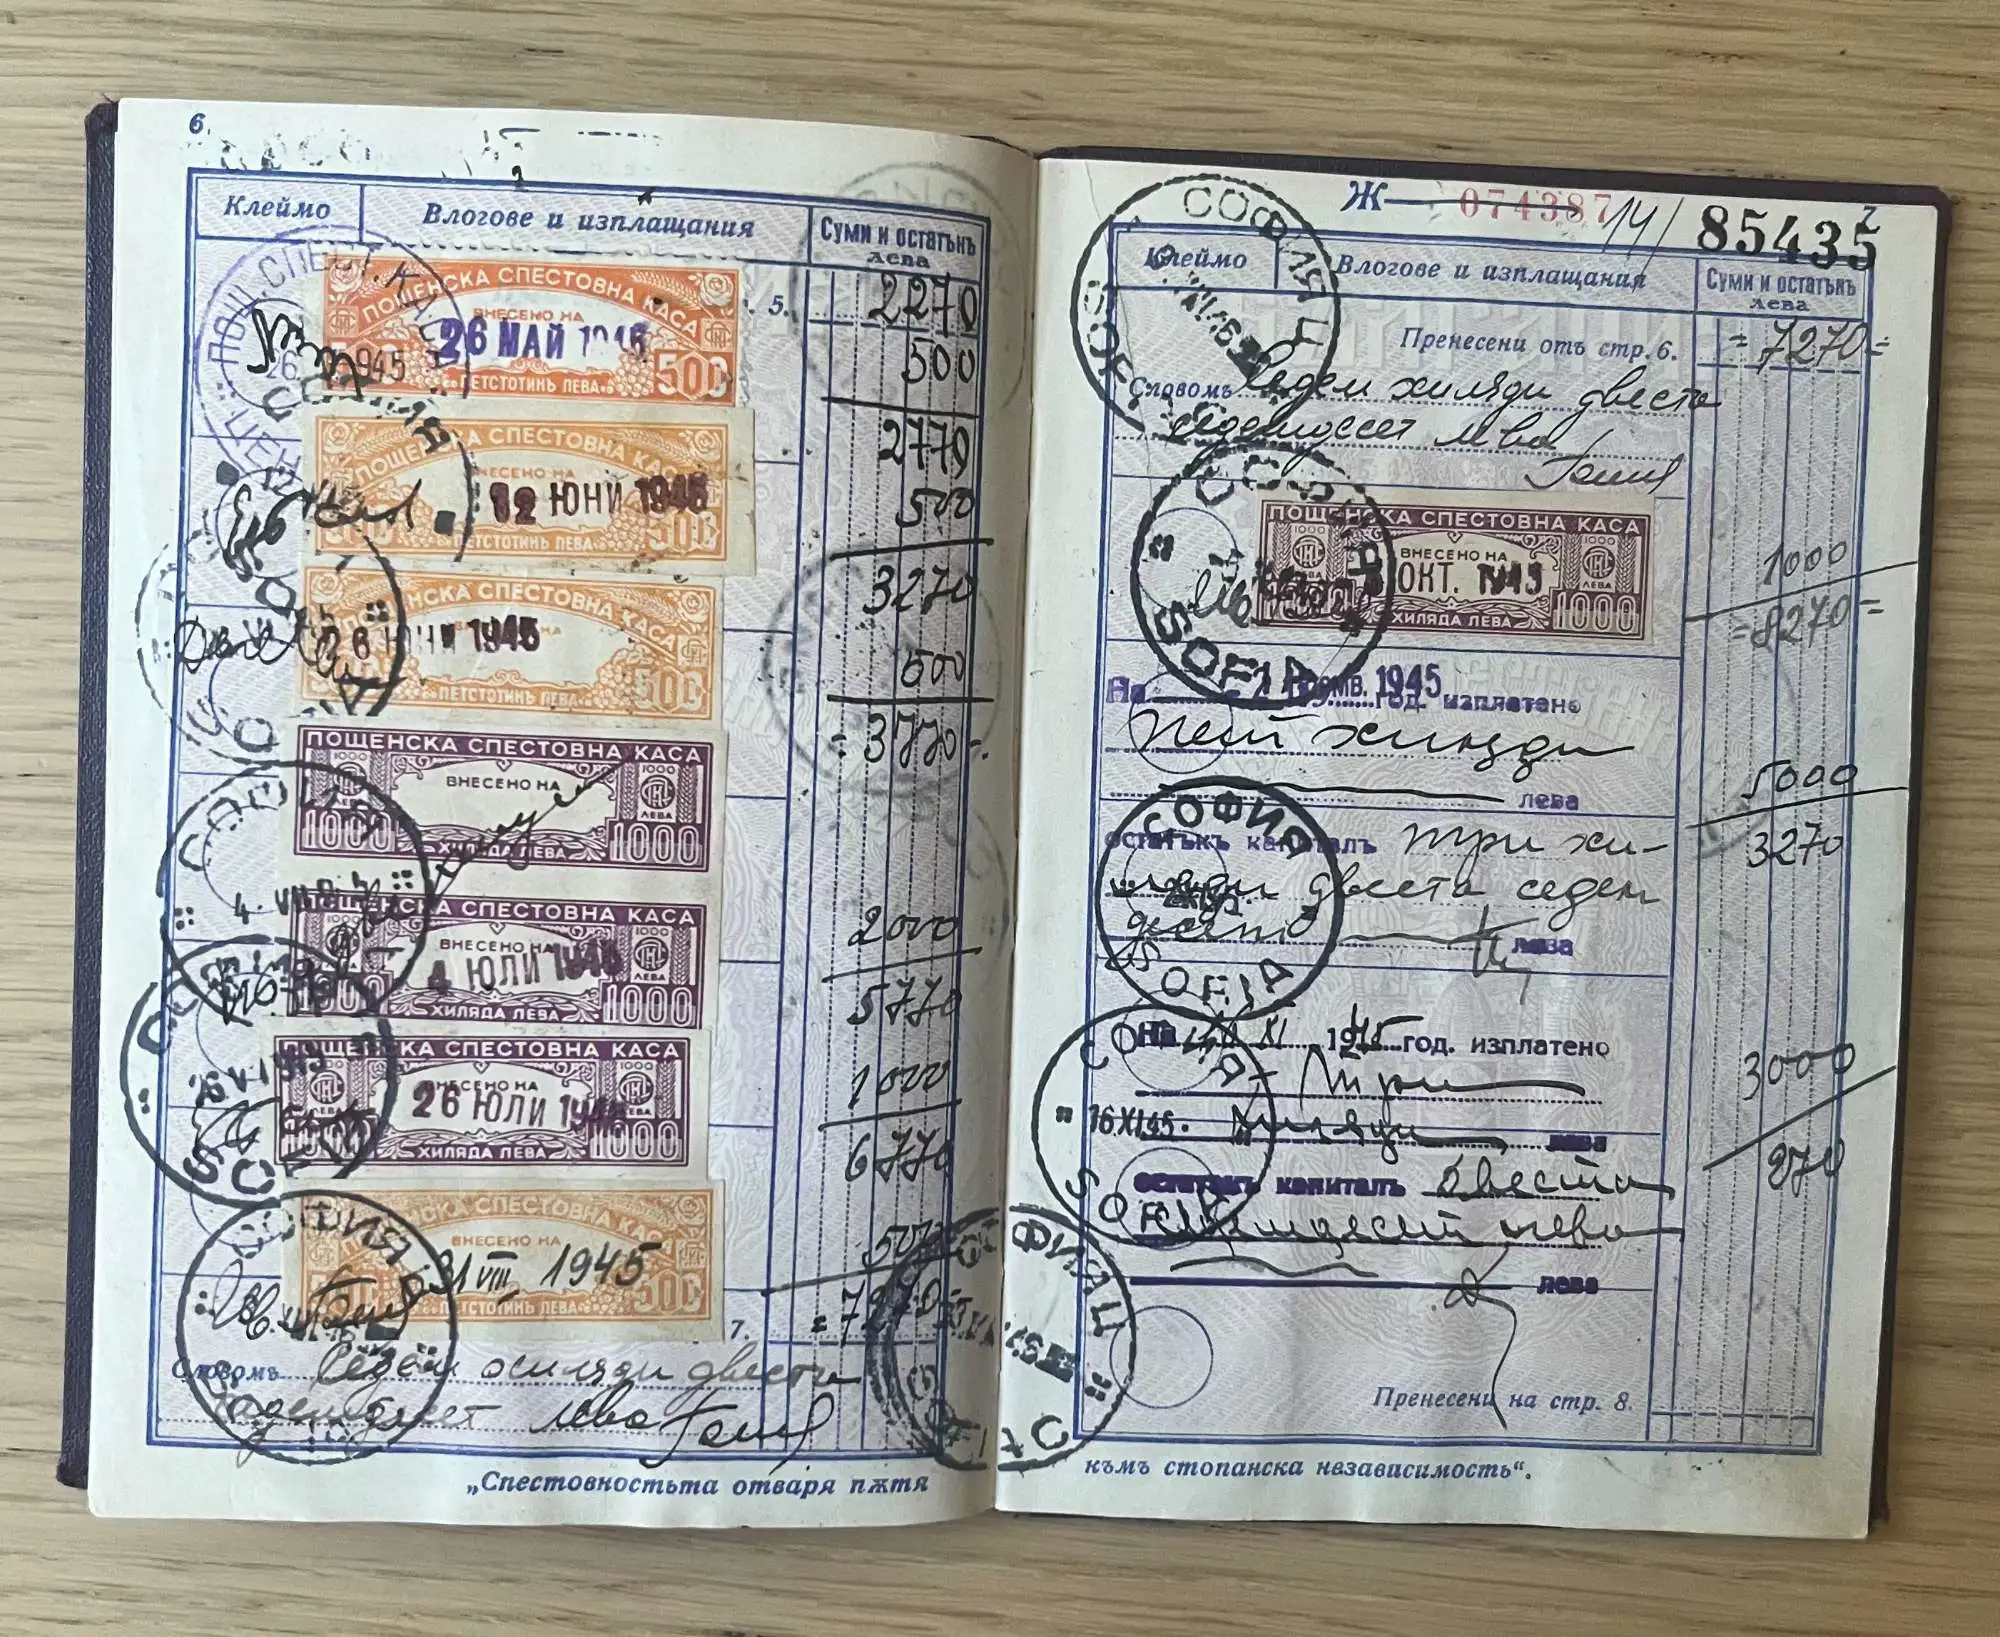 6.
Клеймо Влогове и изплащания Суми и остатъкъ лева
5. 2270
ПОЩЕНСКА СПЕСТОВНА КАСА
ВНЕСЕНО НА
26 МАЙ 1945
ПЕТСТОТИНЬ ЛЕВА 500
500
2770
ПОЩЕНСКА СПЕСТОВНА КАСА
ВНЕСЕНО НА
12 ЮНИ 1945
ПЕТСТОТИНЬ ЛЕВА 500
500
3270
ПОЩЕНСКА СПЕСТОВНА КАСА
26 ЮНИ 1945
ПЕТСТОТИНЬ ЛЕВА 500
500
3770
ПОЩЕНСКА СПЕСТОВНА КАСА
ВНЕСЕНО НА
1000 ЛЕВА
1000 ХИЛЯДА ЛЕВА 1000
ПОЩЕНСКА СПЕСТОВНА КАСА
ВНЕСЕНО НА
4 ЮЛИ 1945
1000 ХИЛЯДА ЛЕВА 1000
2000
5770
ПОЩЕНСКА СПЕСТОВНА КАСА
ВНЕСЕНО НА
26 ЮЛИ 1945
1000 ХИЛЯДА ЛЕВА 1000
1000
6770
ПОЩЕНСКА СПЕСТОВНА КАСА
ВНЕСЕНО НА
31 VIII 1945
ПЕТСТОТИНЬ ЛЕВА 500
500
7. =7270=
Словомъ Седем хиляди двести
седемдесет лева
„Спестовностьта отваря пѫтя
Ж 074387 14/ 85435 7
СОФИЯ
Клеймо Влогове и изплащания Суми и остатъкъ лева
Пренесени отъ стр. 6. =7270=
Словомъ Седем хиляди двеста
седемдесет лева
СОФИЯ SOFIA
ПОЩЕНСКА СПЕСТОВНА КАСА
ВНЕСЕНО НА
ОКТ. 1945
ХИЛЯДА ЛЕВА 1000
1000
=8270=
На 1945 год. изплатено
Пет хиляди
лева
5000
остатъкъ капиталъ три хи-
ляди двеста седем
десет лева
3270
СОФИЯ SOFIA
На XI 1945 год. изплатено
Три
хиляди лева
3000
16 XI 45
остатъкъ капиталъ двеста
седемдесет лева
лева
270
Пренесени на стр. 8.
къмъ стопанска независимость“.